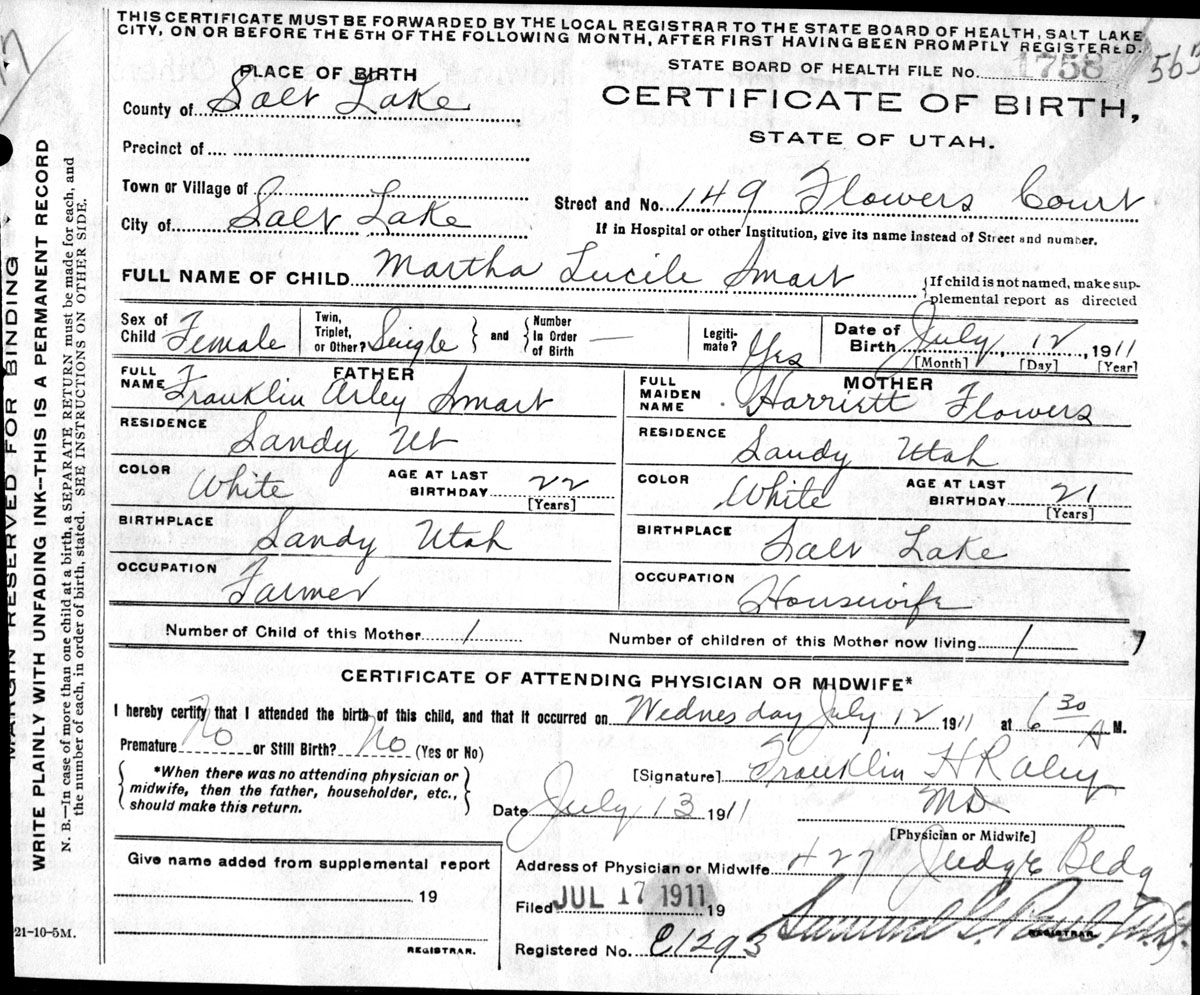 THIS CERTIFICATE MUST BE FORWARDED BY THE LOCAL REGISTRAR TO THE STATE BOARD OF HEALTH, SALT LAKE
CITY, ON OR BEFORE THE 5TH OF THE FOLLOWING MONTH, AFTER FIRST HAVING BEEN PROMPTLY REGISTERED.
STATE BOARD OF HEALTH FILE No. 1758
PLACE OF BIRTH
County of Salt Lake
CERTIFICATE OF BIRTH,
STATE OF UTAH.
Precinct of
Town or Village of
City of Salt Lake
Street and No. 149 Flowers Court
If in Hospital or other Institution, give its name instead of Street and number.
FULL NAME OF CHILD Martha Lucile Smart
{If child is not named, make sup-
plemental report as directed
Sex of Child Female
Twin, Triplet, or Other? Single
and
Number In Order of Birth —
Legiti-mate? Yes
Date of Birth July, 12, 1911
[Month] [Day] [Year]
FATHER
FULL NAME Franklin Arley Smart
RESIDENCE Sandy Ut
COLOR White AGE AT LAST BIRTHDAY 22
[Years]
BIRTHPLACE Sandy Utah
OCCUPATION Farmer
MOTHER
FULL MAIDEN NAME Harriett Flowers
RESIDENCE Sandy Utah
COLOR White AGE AT LAST BIRTHDAY 21
[Years]
BIRTHPLACE Salt Lake
OCCUPATION Housewife
Number of Child of this Mother 1 Number of children of this Mother now living 1
CERTIFICATE OF ATTENDING PHYSICIAN OR MIDWIFE*
I hereby certify that I attended the birth of this child, and that it occurred on Wednesday July 12 1911 at 6 30 A M.
Premature No or Still Birth? No (Yes or No)
*When there was no attending physician or
midwife, then the father, householder, etc.,
should make this return.
[Signature] Franklin H Raley
MD
[Physician or Midwife]
Date July 13 1911
Give name added from supplemental report
19
REGISTRAR.
Address of Physician or Midwife 427 Judge Bldg
Filed JUL 17 1911 19
REGISTRAR.
Registered No. 1293
21-10-5M.
MARGIN RESERVED FOR BINDING
WRITE PLAINLY WITH UNFADING INK—THIS IS A PERMANENT RECORD
N. B.—In case of more than one child at a birth, a SEPARATE RETURN must be made for each, and
the number of each, in order of birth, stated. SEE INSTRUCTIONS ON OTHER SIDE.